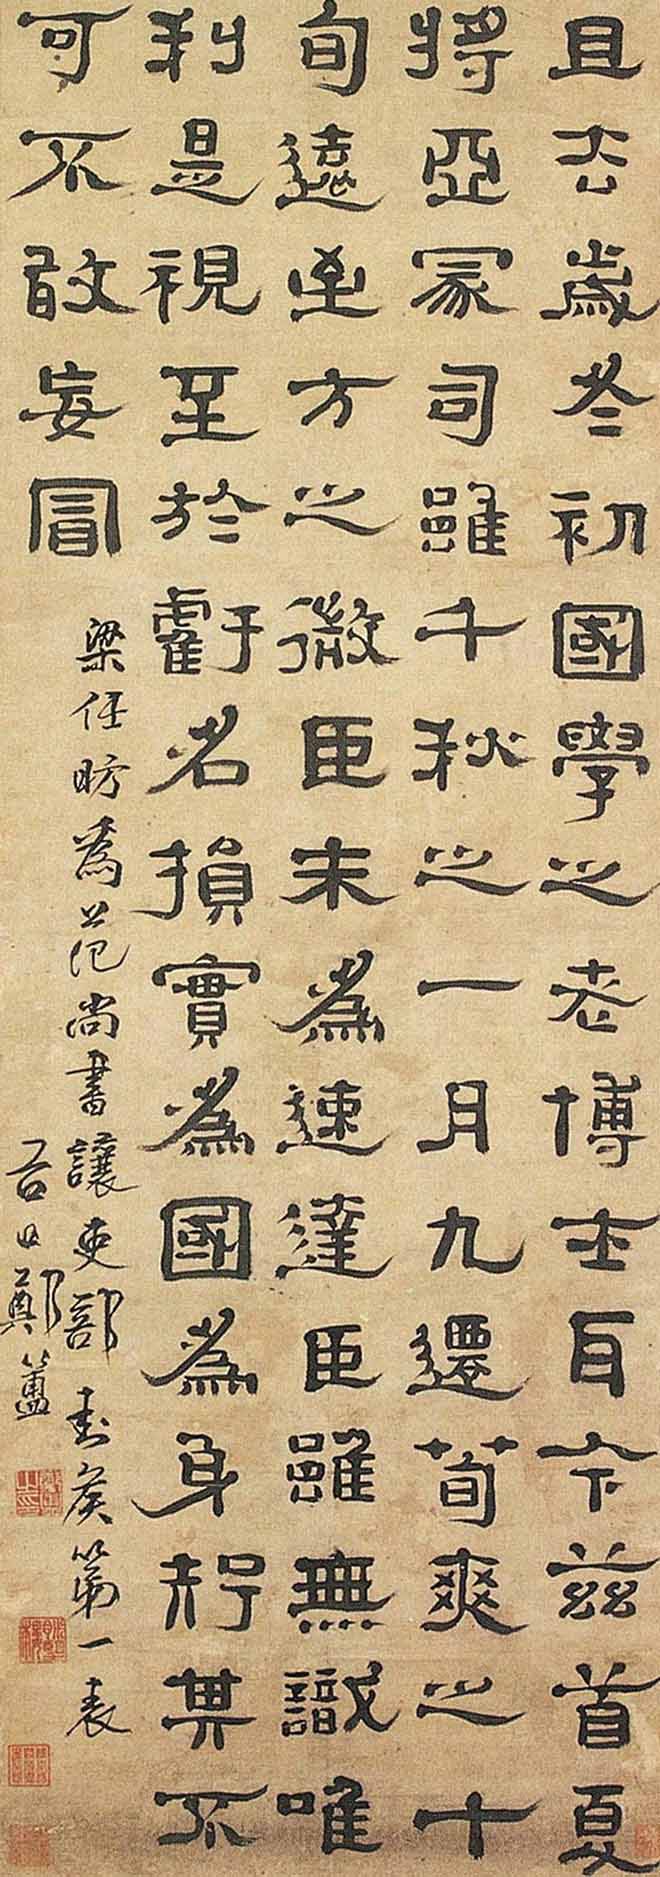 且去歲冬初國學之老博士耳今茲首夏
將亞冢司雖千秋之一月九遷荀爽之十
旬遠至方之微臣未為速達臣雖無識唯
利是視至於虧名損實為國為身知其不
可不敢妄冒
梁任昉為范尚書讓吏部封侯第一表
谷口鄭簠